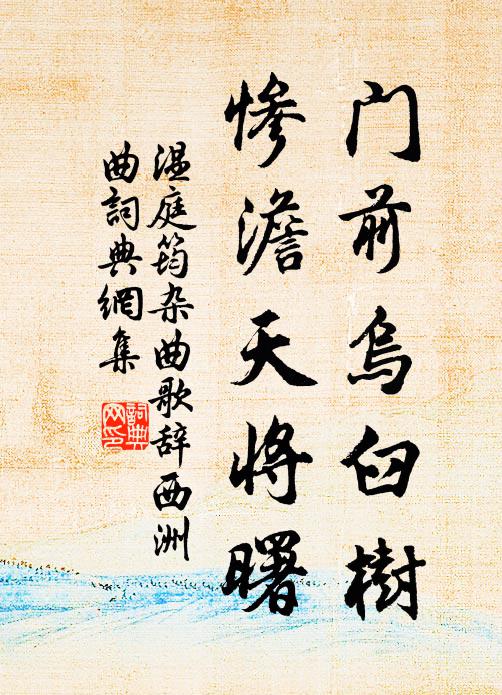 门前烏臼樹
惨澹天将曙
温庭筠杂曲歌辞西洲
曲詞典網集
詞典网印